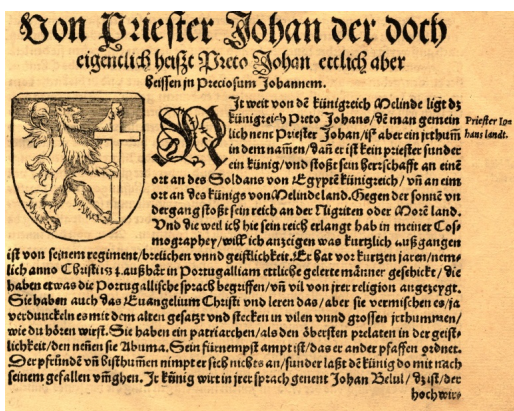 Von Priester Johan der doch
eigentlich heiszt Preto Johan ettlich aber
heissen jn Preciosum Johannem.
NJt weit von dẽ künigreich Melinde ligt dz
künigreich Preto Johans/dẽ man gemein
lich nent Priester Johan/ist aber ein jrthum̃
in dem nam̃en/dañ er ist kein priester sunder
ein künig/vnd stoßt sein herrschafft an einẽ
ort an des Soldans von Egyptẽ künigreich/vñ an eim
ort an des künigs von Melinde land. Gegen der sonnẽ vn
dergang stoßt sein reich an der Nigriten oder Morẽ land.
Vnd die weil ich hie sein reich erlangt hab in meiner Cos-
mographey/will ich anzeigen was kurtzlich außgangen
ist von seinem regiment/breüchen vnnd geistlichkeit. Er hat vor kurtzen jaren/nem-
lich anno Christi außhär in Portugalliam ettliche gelerte männer geschickt/die
haben etwas die Portugallische sprach begriffen/vñ vil von jrer religion angezeygt.
Sie haben auch das Euangelium Christi vnd leren das/aber sie vermischen es/ja
verdunckeln es mit dem alten gesatzt vnd stecken in vilen vnnd grossen jrthummen/
wie du hören wirst. Sie haben ein patriarchen/als den öbersten prelaten in der geist-
lichkeit/den nenẽ sie Abuma. Sein fürnempst ampt ist/das er ander pfaffen ordnet.
Der pfründẽ vñ bisthumẽ nimpt er sich nichts an/sunder laßt dẽ künig do mit nach
seinem gefallen vm̃ghen. Jr künig wirt in jrer sprach genent Johan Belul/dz ist/der
hochwir=
Priester Jo=
hans landt.